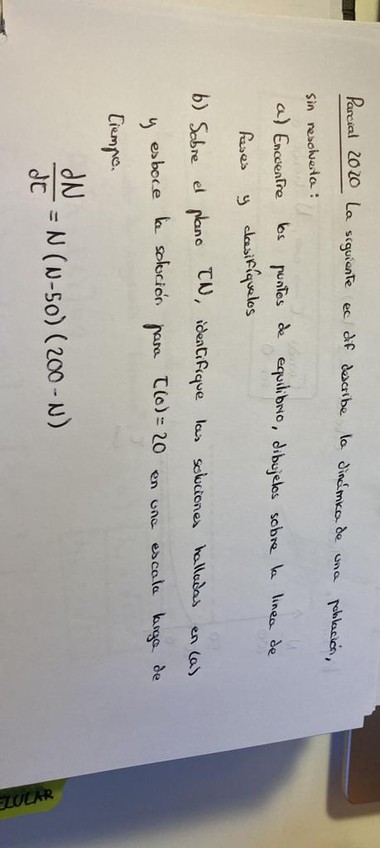 Parcial 2020 La siguiente ec dif describe la dinámica de una población,
sin resolverla:
a) Encuentre los puntos de equilibrio, dibujelos sobre la linea de
fases y clasifíquelos
b) Sobre el plano TN, identifique las soluciones halladas en (a)
y esboce la solución para T(0)=20 en una escala larga de
tiempo.
dN/dt = N(N-50)(200-N)
ELULAR